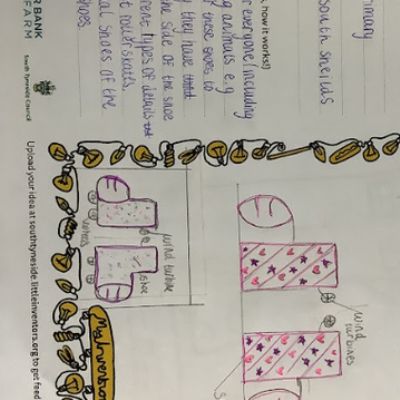 rimary
South Sheilds
, how it works!)
r everyone (including
g animals e.g
these shoes to
they have
the side of the shoe
rent types of details
t rollerskates.
al shoes of the
shoes.
R BANK
FARM
South Tyneside Council
Upload your idea at southtyneside.littleinventors.org to get feed
wind turbine
shoe
wheels
wind
turbines
S
My Invention